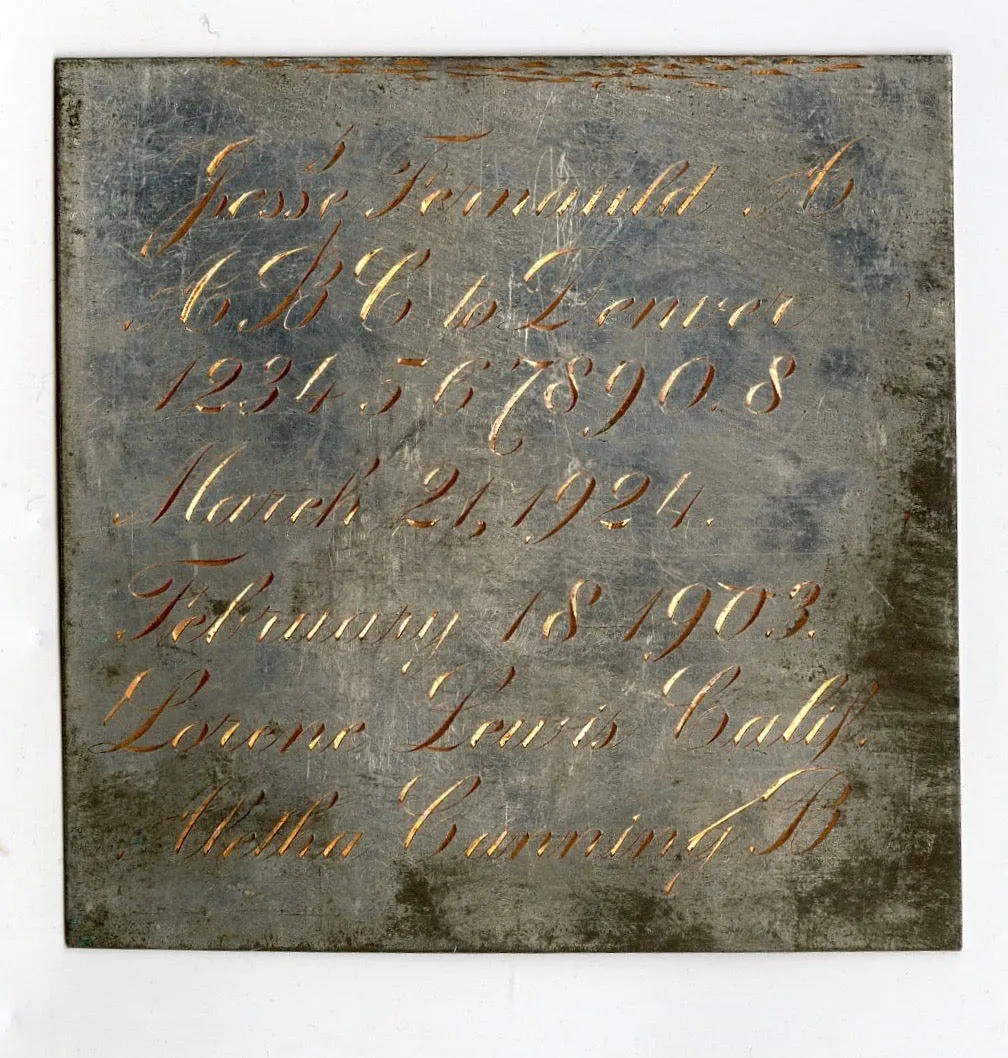 Jesse Fernauld A
A B C to Denver
1234567890.8
March 21, 1924.
February 18 1903.
Lorene Lewis Calif.
Canning B